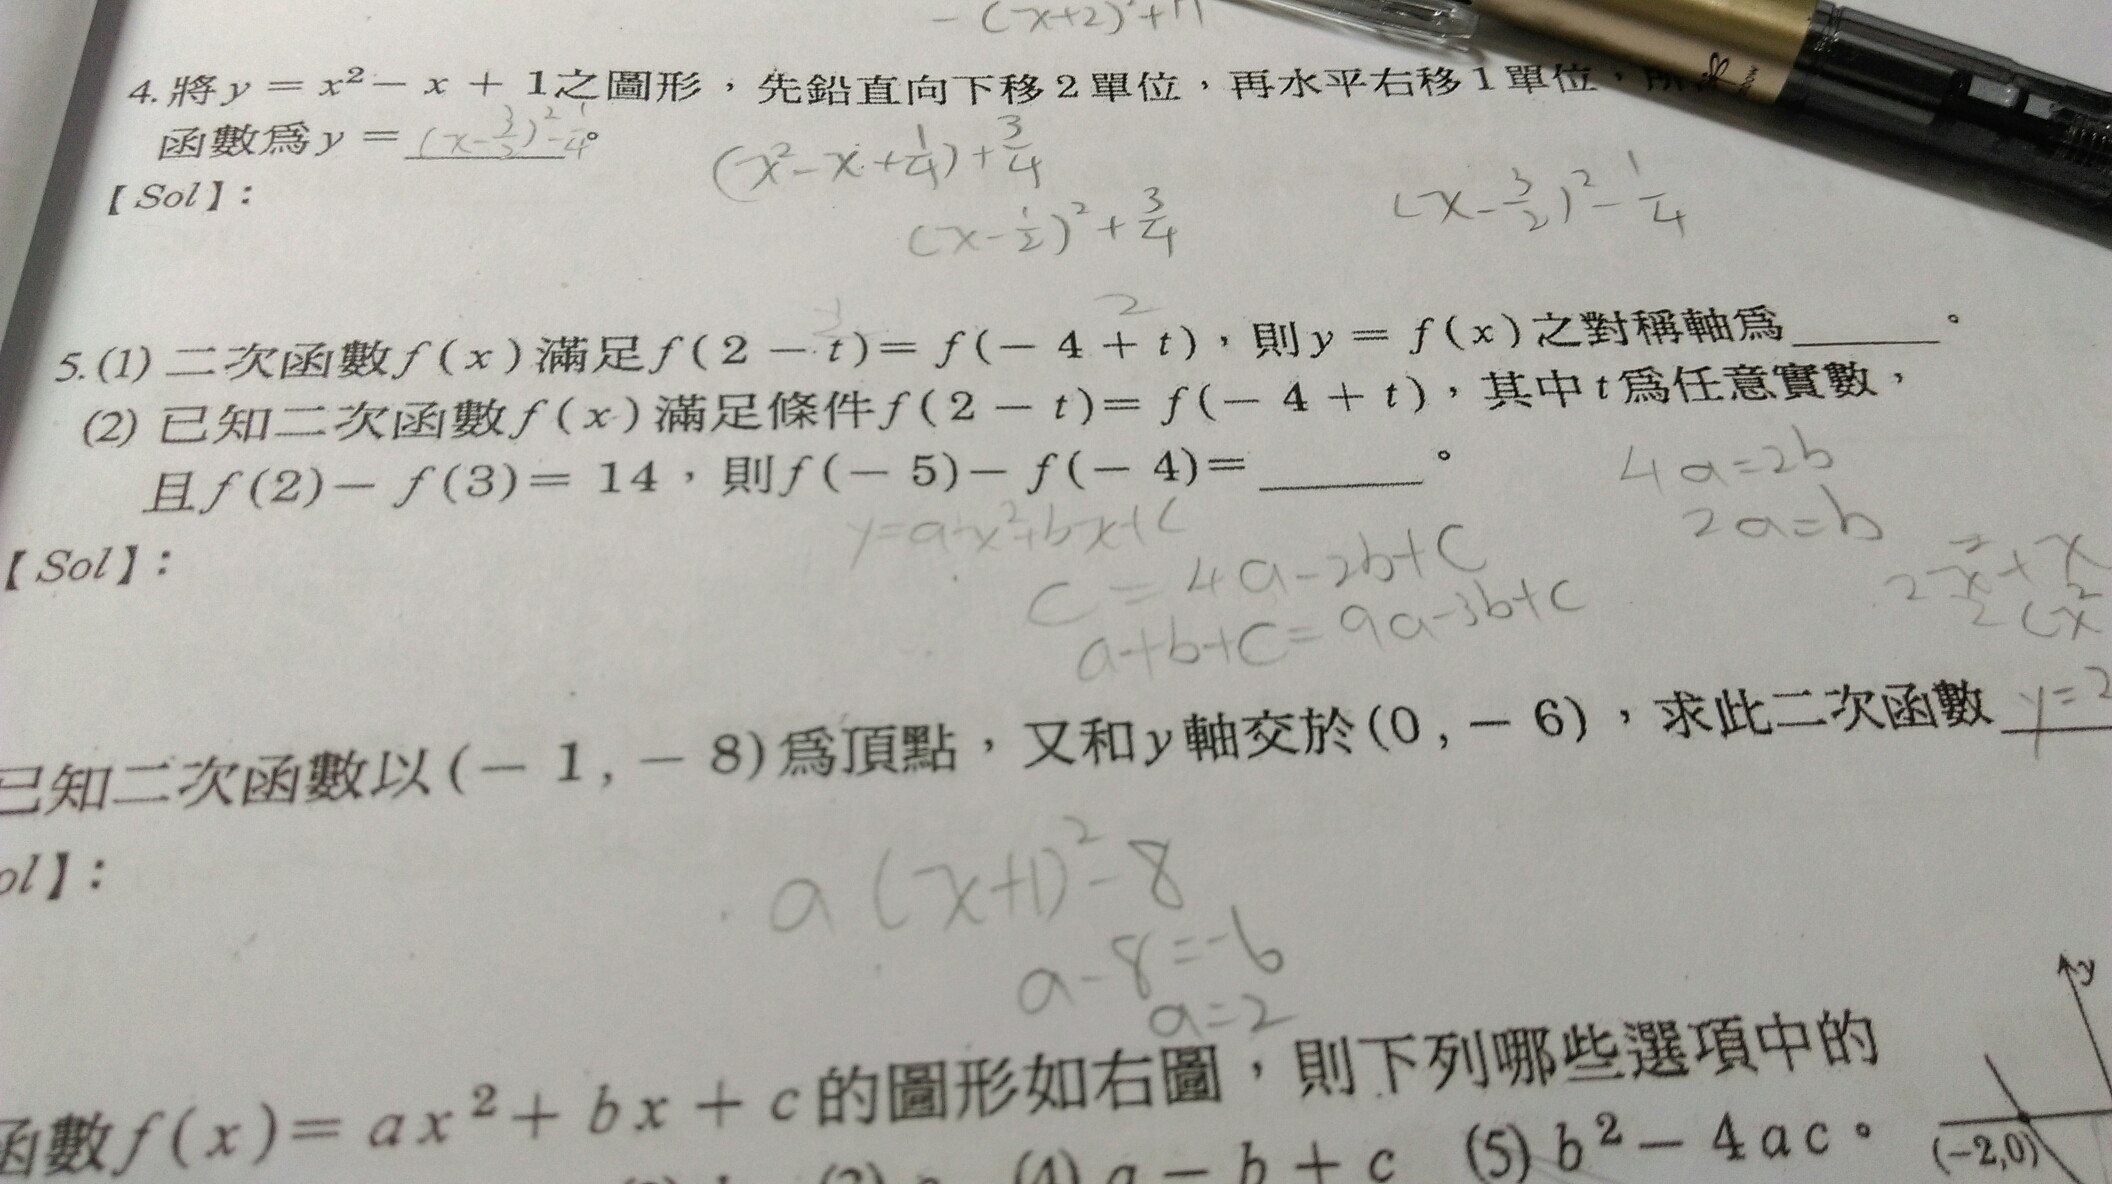 - (x+2)²+11
4. 將 y = x² - x + 1之圖形，先鉛直向下移2單位，再水平右移1單位，所
函數為 y = (x-3/2)²-1/4。
(x²-x+1/4)+3/4
【Sol】：
(x-1/2)²+3/4
(x-3/2)²-1/4
5. (1) 二次函數 f(x) 滿足 f(2 - t) = f(- 4 + t)，則 y = f(x) 之對稱軸為______。
3 2
(2) 已知二次函數 f(x) 滿足條件 f(2 - t) = f(- 4 + t)，其中 t 為任意實數，
且 f(2) - f(3) = 14，則 f(- 5) - f(- 4) = ______。
4a=2b
2a=b
y=ax²+bx+c
【Sol】：
c = 4a-2b+c
a+b+c=9a-3b+c
2x²+x
2(x²
已知二次函數以(- 1, - 8)為頂點，又和 y 軸交於(0, - 6)，求此二次函數 y=2
ol】：
a(x+1)²-8
a-8=-6
a=2
函數 f(x) = ax² + bx + c 的圖形如右圖，則下列哪些選項中的
(4) a - b + c (5) b² - 4ac。
y
(-2,0)